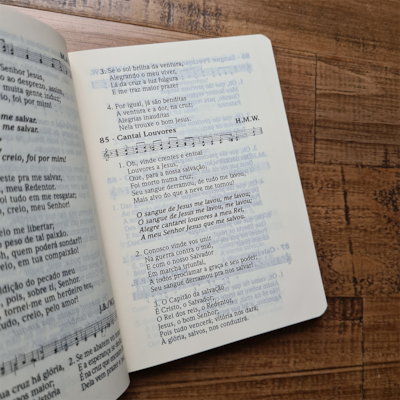 Senhor Jesus,
ao desprezo, assim,
muita gente induz,
me salvar.
creio, foi por mim!
este pra me salvar,
vo, meu Redentor.
do tudo em me resgatar;
creio, meu Senhor!
me libertar;
peso de tal paixão.
oh, quem poderá sondar?!
indo na tua mão.
ndição do pecado meu
is, sobre ti, Senhor.
tornei-me um herdeiro teu,
creio, pelo amor!
cruz há glória,
2. Se me abatem
E a esperança se
Dela vem
3. Se o sol brilha da ventura,
Alegrando o meu viver,
Lá da cruz a luz fulgura
E me traz maior prazer
4. Por igual, já são benditas
A ventura e a dor, na cruz;
Alegrias inauditas
Nela trouxe o bom Jesus.
85 - Cantai Louvores H.M.W.
1. Oh, vinde crentes e entoai
Louvores a Jesus,
Que, para a nossa salvação,
Foi morto numa cruz;
Seu sangue derramou, de tudo me lavou;
Mais alvo do que a neve me tornou!
O sangue de Jesus me lavou, me lavou;
O sangue de Jesus me lavou, me lavou;
Alegre cantarei louvores a meu Rei,
A meu Senhor Jesus que me salvou.
2. Conosco vinde vos unir
Na guerra contra o mal,
E com o nosso Salvador
Em marcha triunfal,
A todos proclamar a graça e seu poder;
Seu sangue derramou pra nos salvar!
3. O Capitão da salvação
É Cristo, o Salvador,
O Rei dos reis, o Redentor,
Jesus, o bom Senhor;
Pois tudo vencerá; vitória nos dará;
À glória, salvos, nos conduzirá.